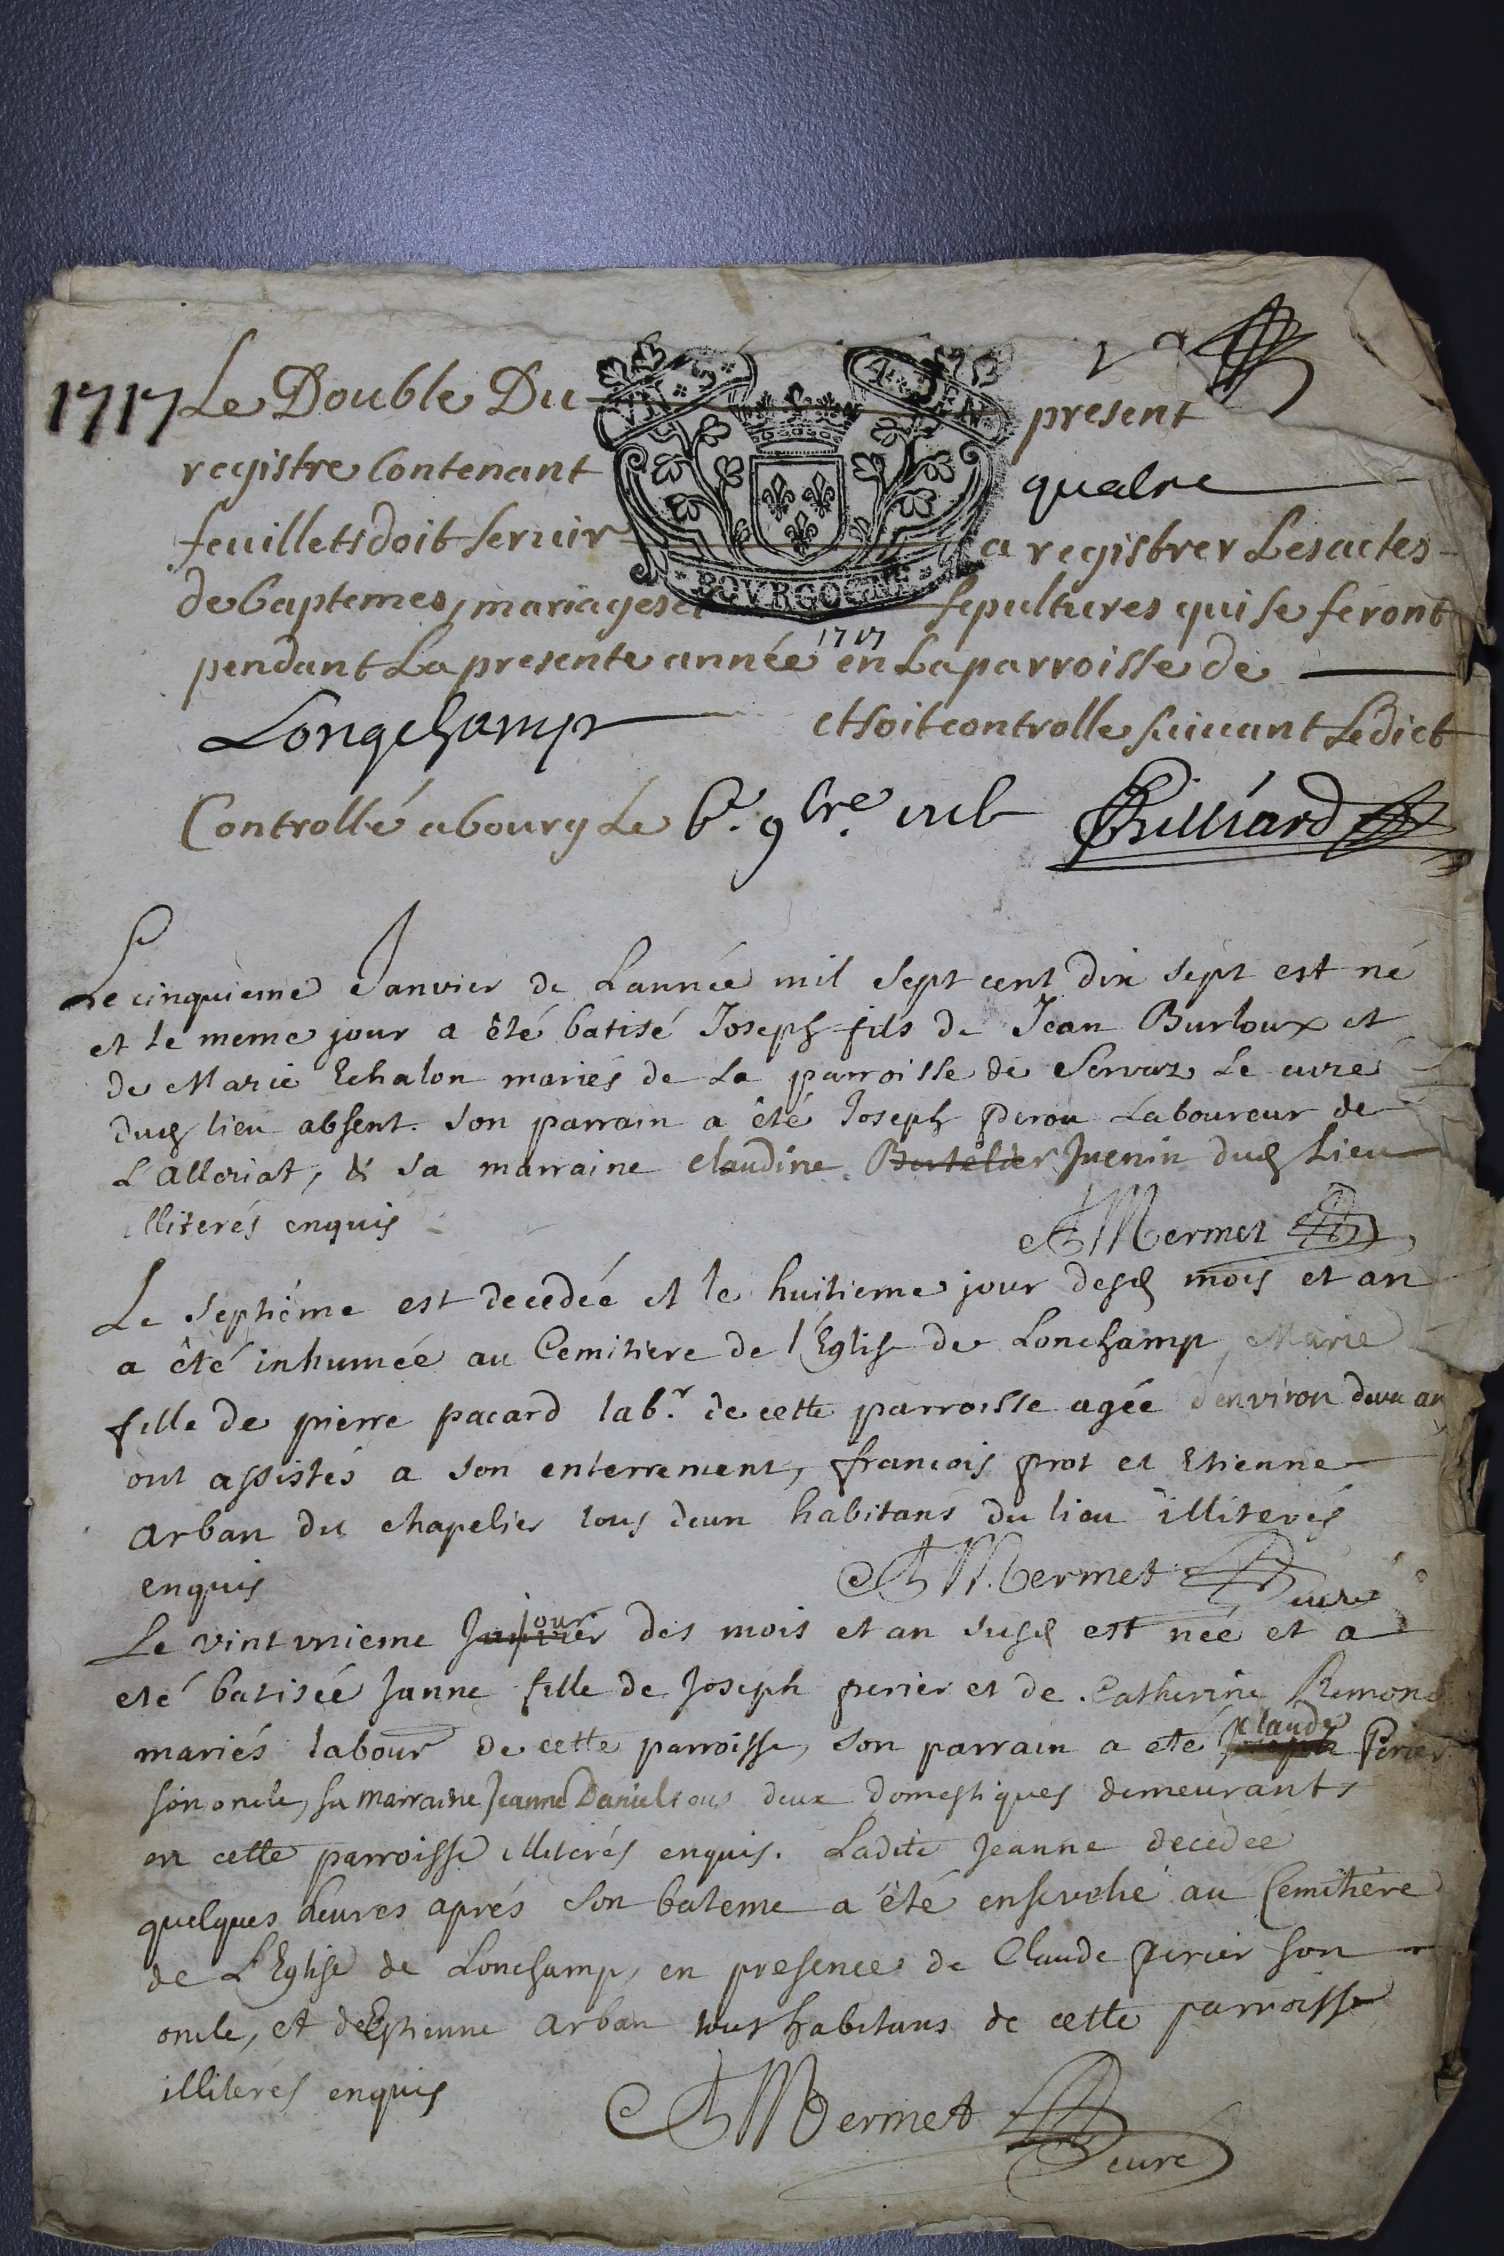 1717 Le Double Du present
registre Contenant quatre
feuillets doit servir a registrer Les actes
de baptemes, mariages et sepultures qui se feront
pendant La presente année 1717 en La parroisse de
Longchamp et soit controlle suivant Ledict
Controllé a bourg Le 9bre.
BOVRGOGNE
Le cinquieme Janvier de Lannée mil sept cent dix sept est né
et le meme jour a êté batisé Joseph fils de Jean Burloux et
de Marie Echalon mariés de La parroisse de Servaz Le curé
dud lieu absent. son parrain a êté Joseph perou Laboureur de
L'Alleriat, & sa marraine claudine Bertelier Juenin dud Lieu
illiterés enquis
Mermet
Le septiême est decedée et le huitieme jour desd mois et an
a êté inhumée au Cemitiere de l'Eglise de Lonchamp, Marie
fille de pierre pacard labr. de cette parroisse agée d'environ deux an
ont assistés a son enterrement, francois prot et Etienne
arban dit chapelier tous deux habitans du lieu illiterés
enquis
Mermet curé
Le vint unieme Janvier jour des mois et an susd est née et a
eté batisée Janne fille de Joseph perier et de Catherine Remond
mariés labour de cette parroisse, son parrain a eté Joseph claude Perier
son oncle, sa marraine Jeanne Daniel tous deux domestiques demeurants
en cette parroisse illiterés enquis. Ladite Jeanne decedée
quelques heures aprés son bateme a êté enseveli au Cemitiere
de L'Eglise de Lonchamp, en presence de Claude perier son
oncle, et de Etienne arban tous habitans de cette parroisse
illiterés enquis
Mermet
curé